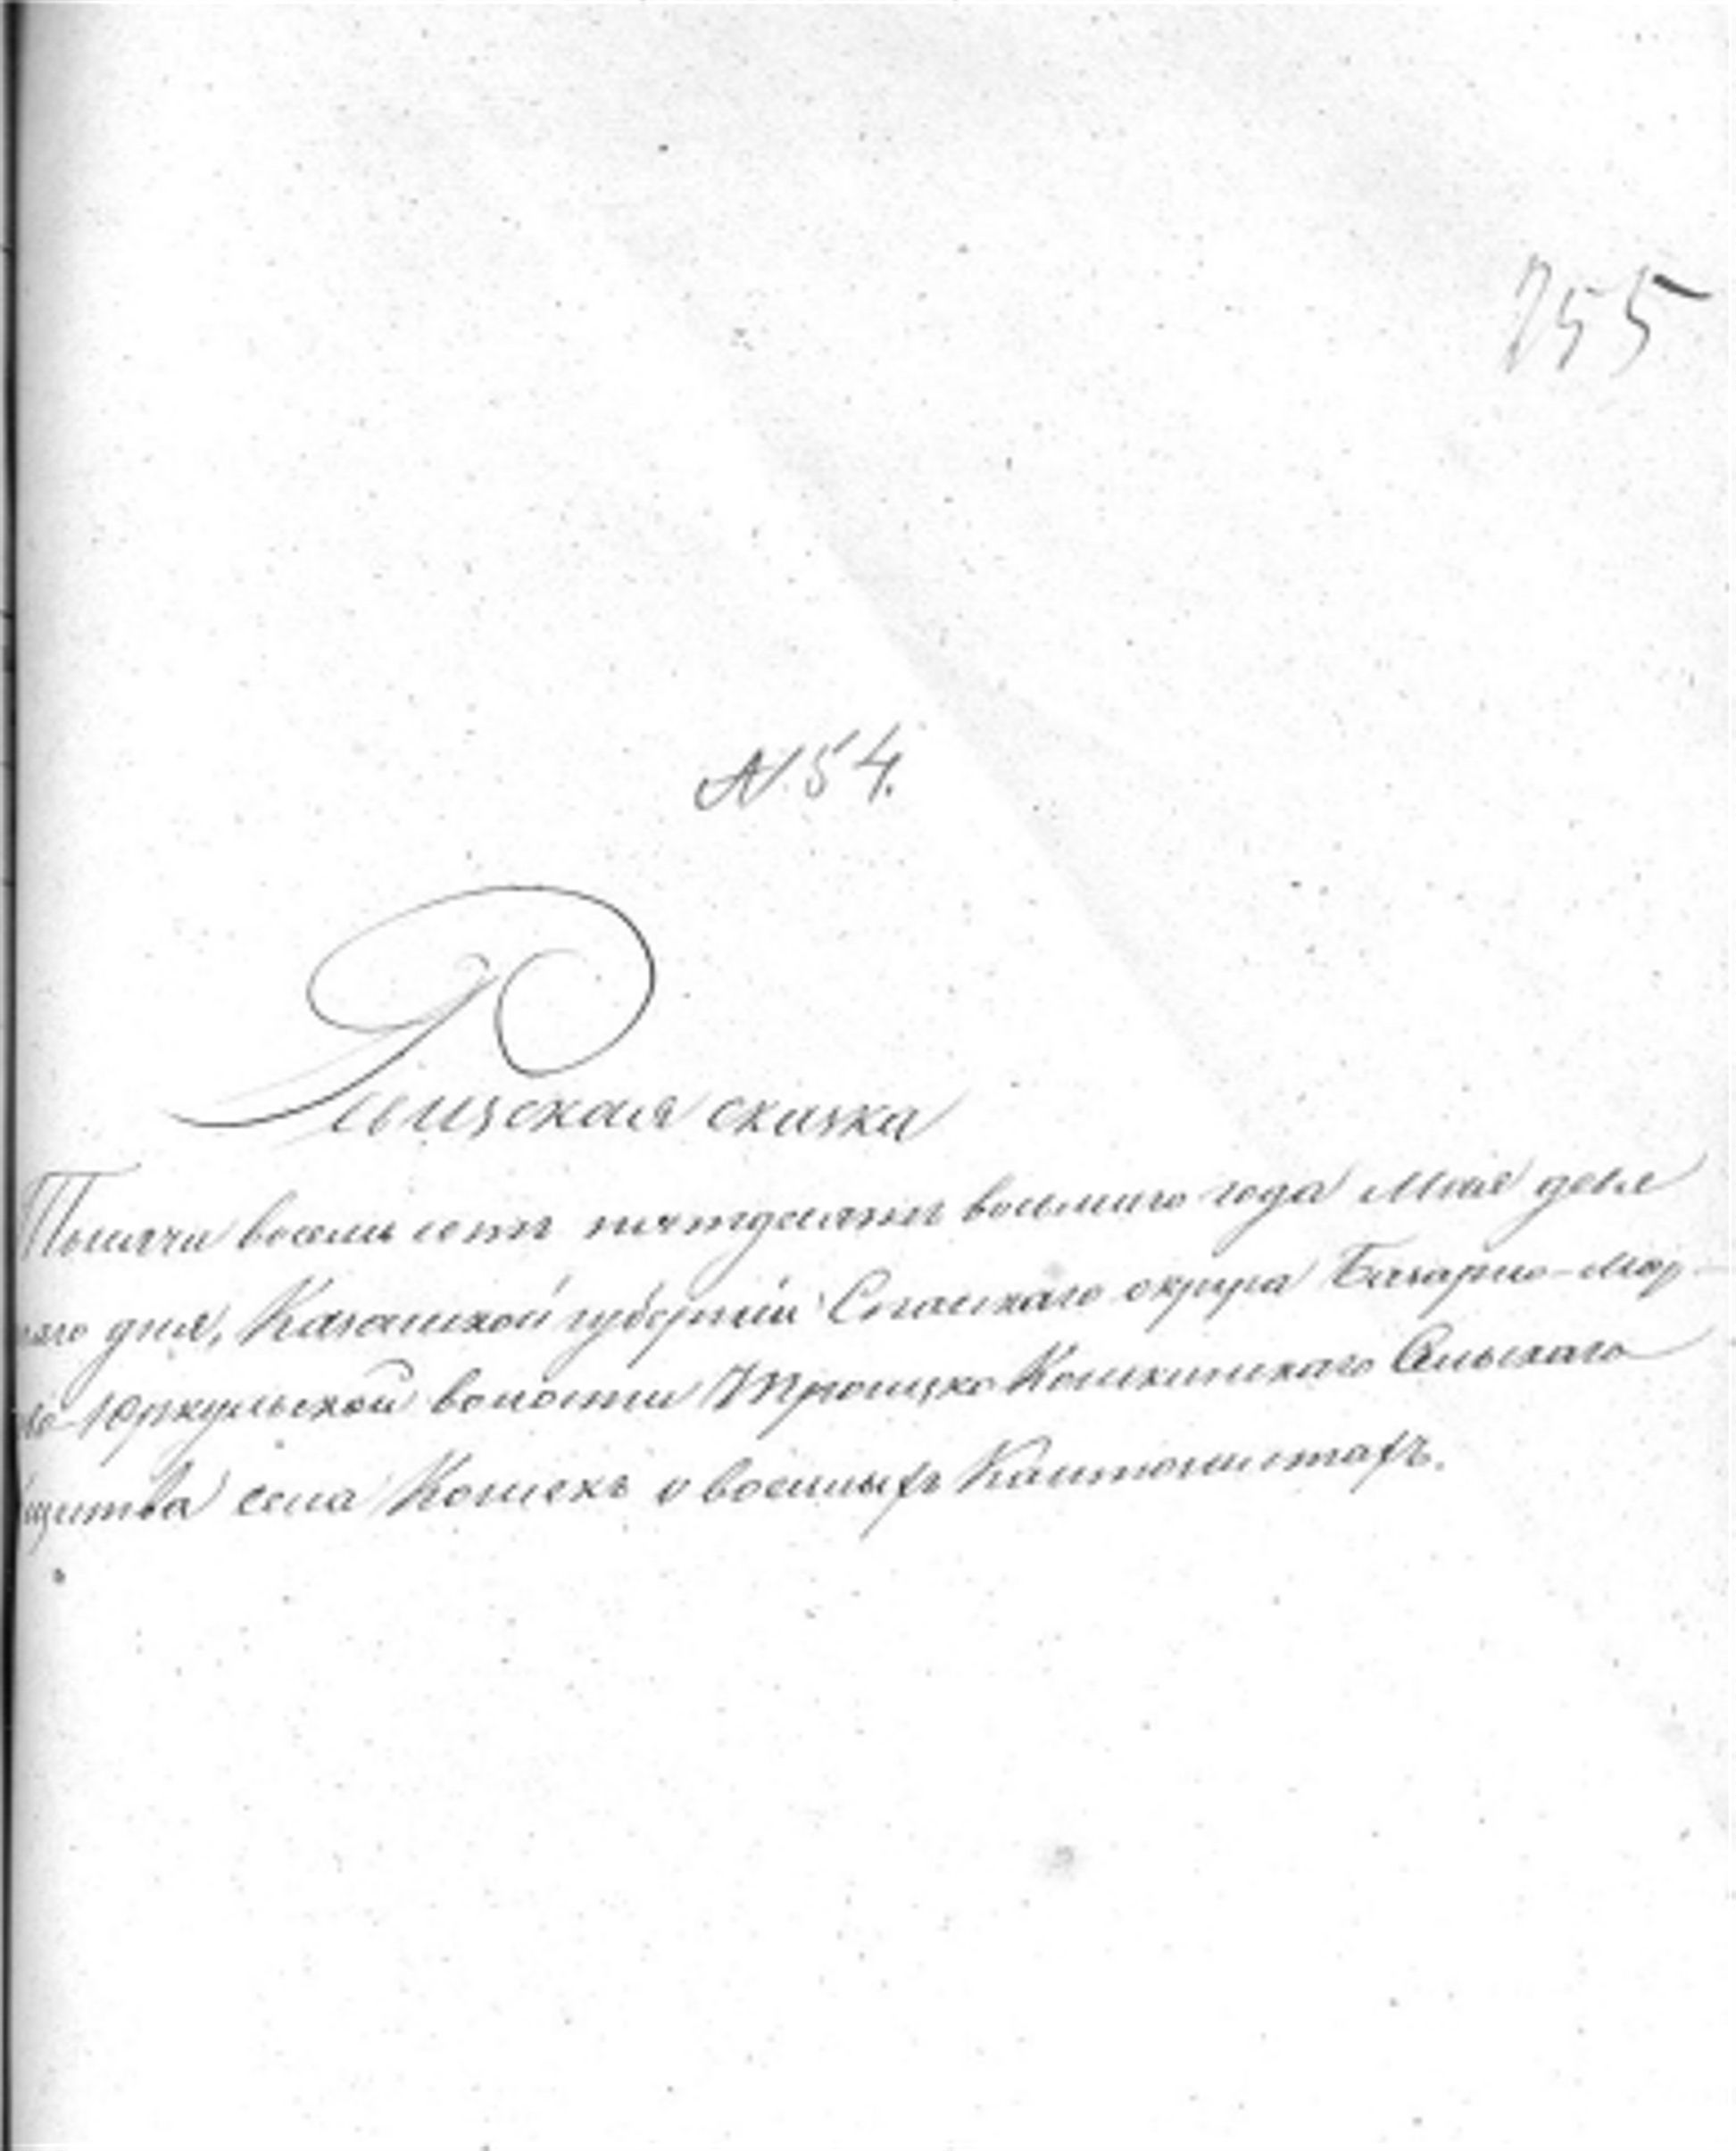 255
№ 54.
Ревизская сказка
Тысячи восемь сотъ пятдесятъ восьмаго года Мая деся
таго дня, Казанской губерніи Спаскаго округа Базарно-Мор-
во-Юркульской волости Троицко Кошкинскаго Сельскаго
щества села Кошекъ о военныхъ Кантонистахъ.